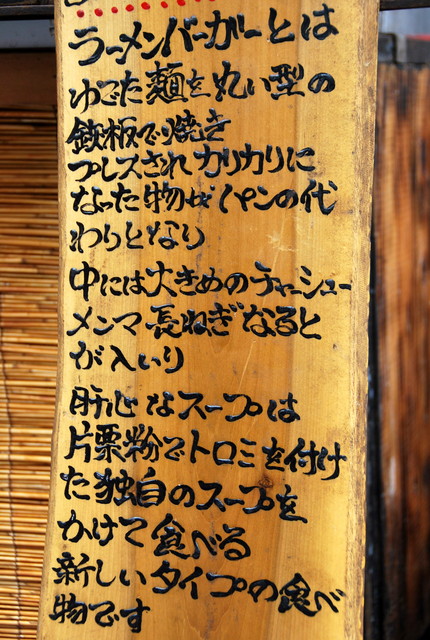 ラーメンバーガーとは
ゆでた麺を丸い型の
鉄板で焼き
プレスされカリカリに
なった物がパンの代
わりとなり
中には大きめのチャーシュー
メンマ長ねぎなると
が入いり
肝心なスープは
片栗粉でトロミを付け
た独自のスープを
かけて食べる
新しいタイプの食べ
物です